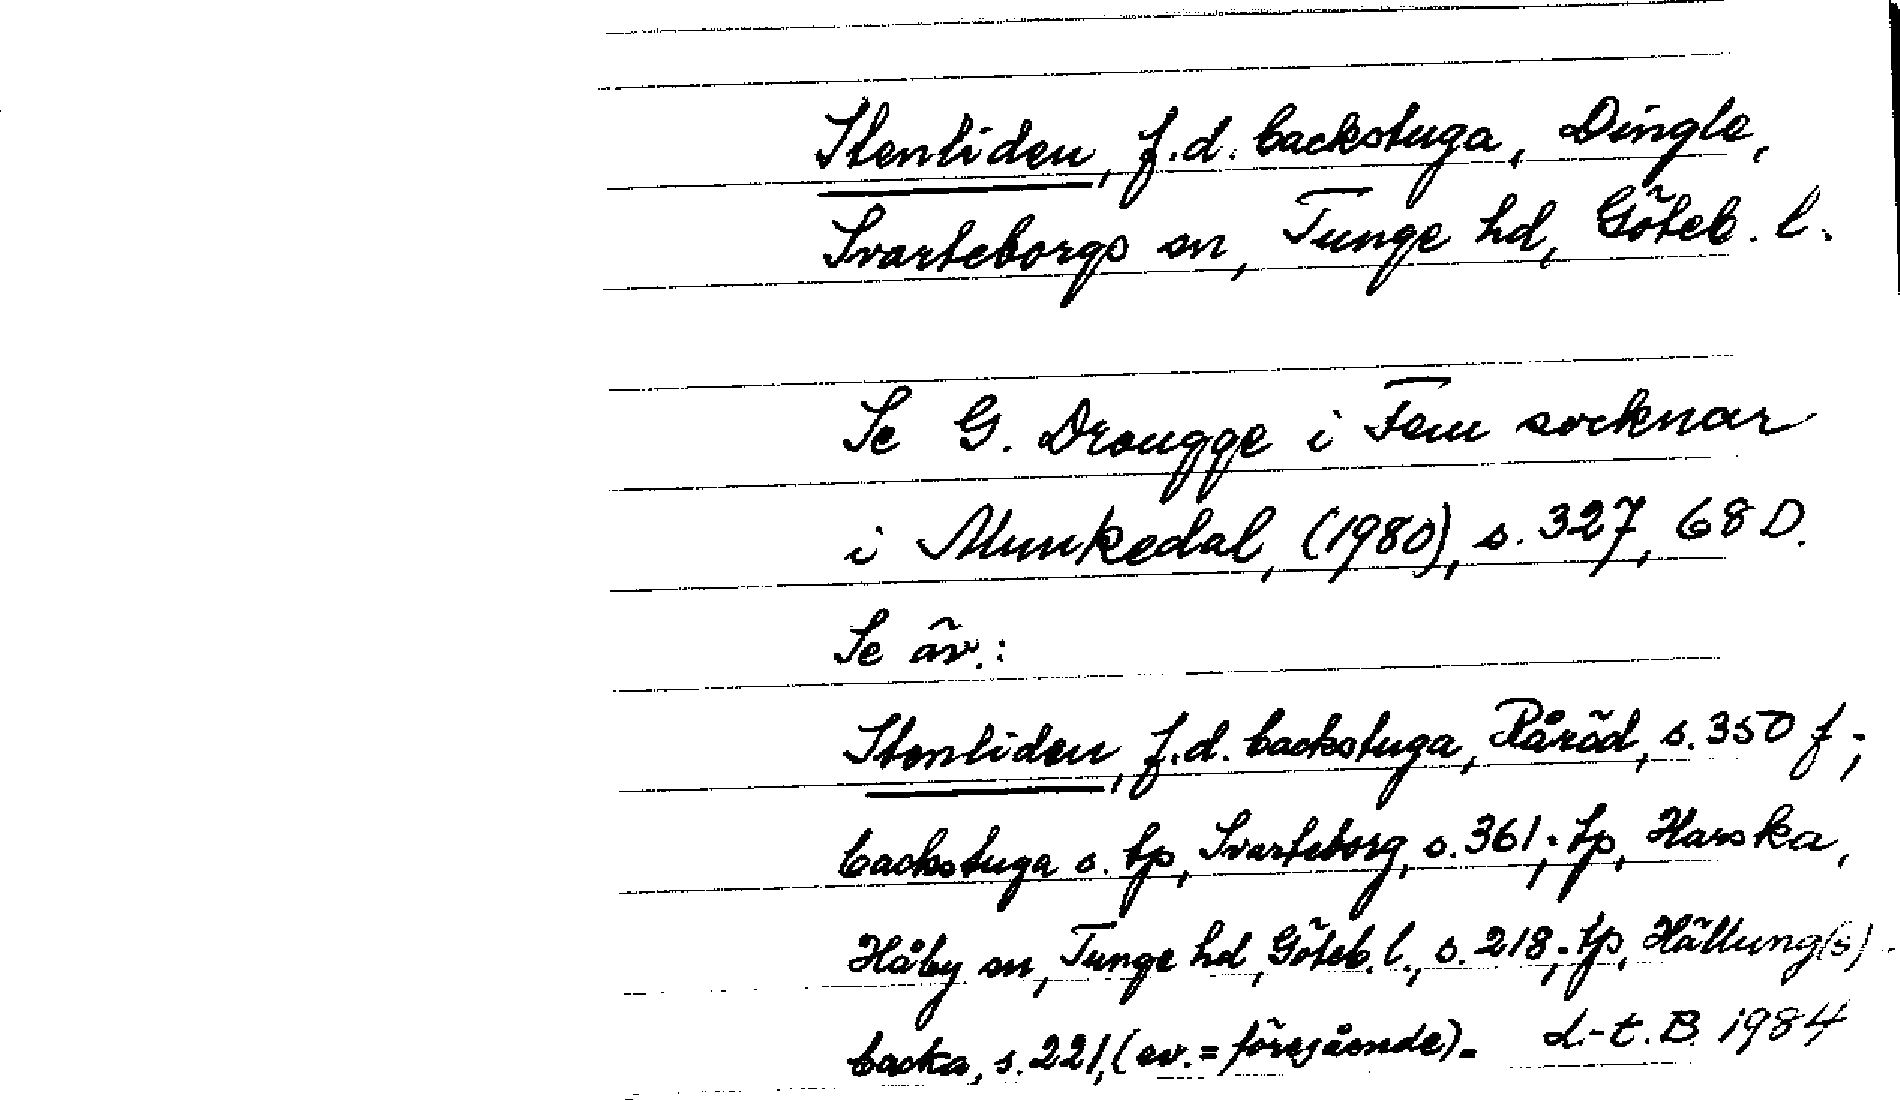 Stenliden, f.d. backstuga, Dingle,
Svarteborgs sn, Tunge hd, Göteb. l.
Se G. Drougge i Fem socknar
i Munkedal, (1980), s. 327, 68 D.
Se äv.:
Stenliden, f.d. backstuga, Råröd, s. 350 f;
backstuga o. tp, Svarteborg, s. 361; tp, Harska,
Håby sn, Tunge hd, Göteb. l., s. 218; tp, Hällung(s)-
backa, s. 221, (ev. = föregående). L-t. B 1984